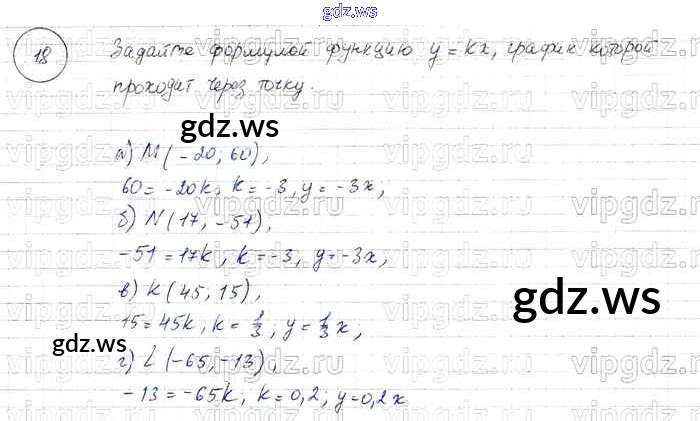 gdz.ws
18
Задайте формулой функцию y = kx, график которой
проходит через точку.
gdz.ws
а) M(-20; 60),
60 = -20k, k = -3, y = -3x;
б) N(17, -51),
-51 = 17k, k = -3, y = -3x,
в) K(45, 15),
gdz.ws
15 = 45k, k = 1/3, y = 1/3 x,
gdz.ws
г) L(-65, -13),
-13 = -65k, k = 0,2; y = 0,2x